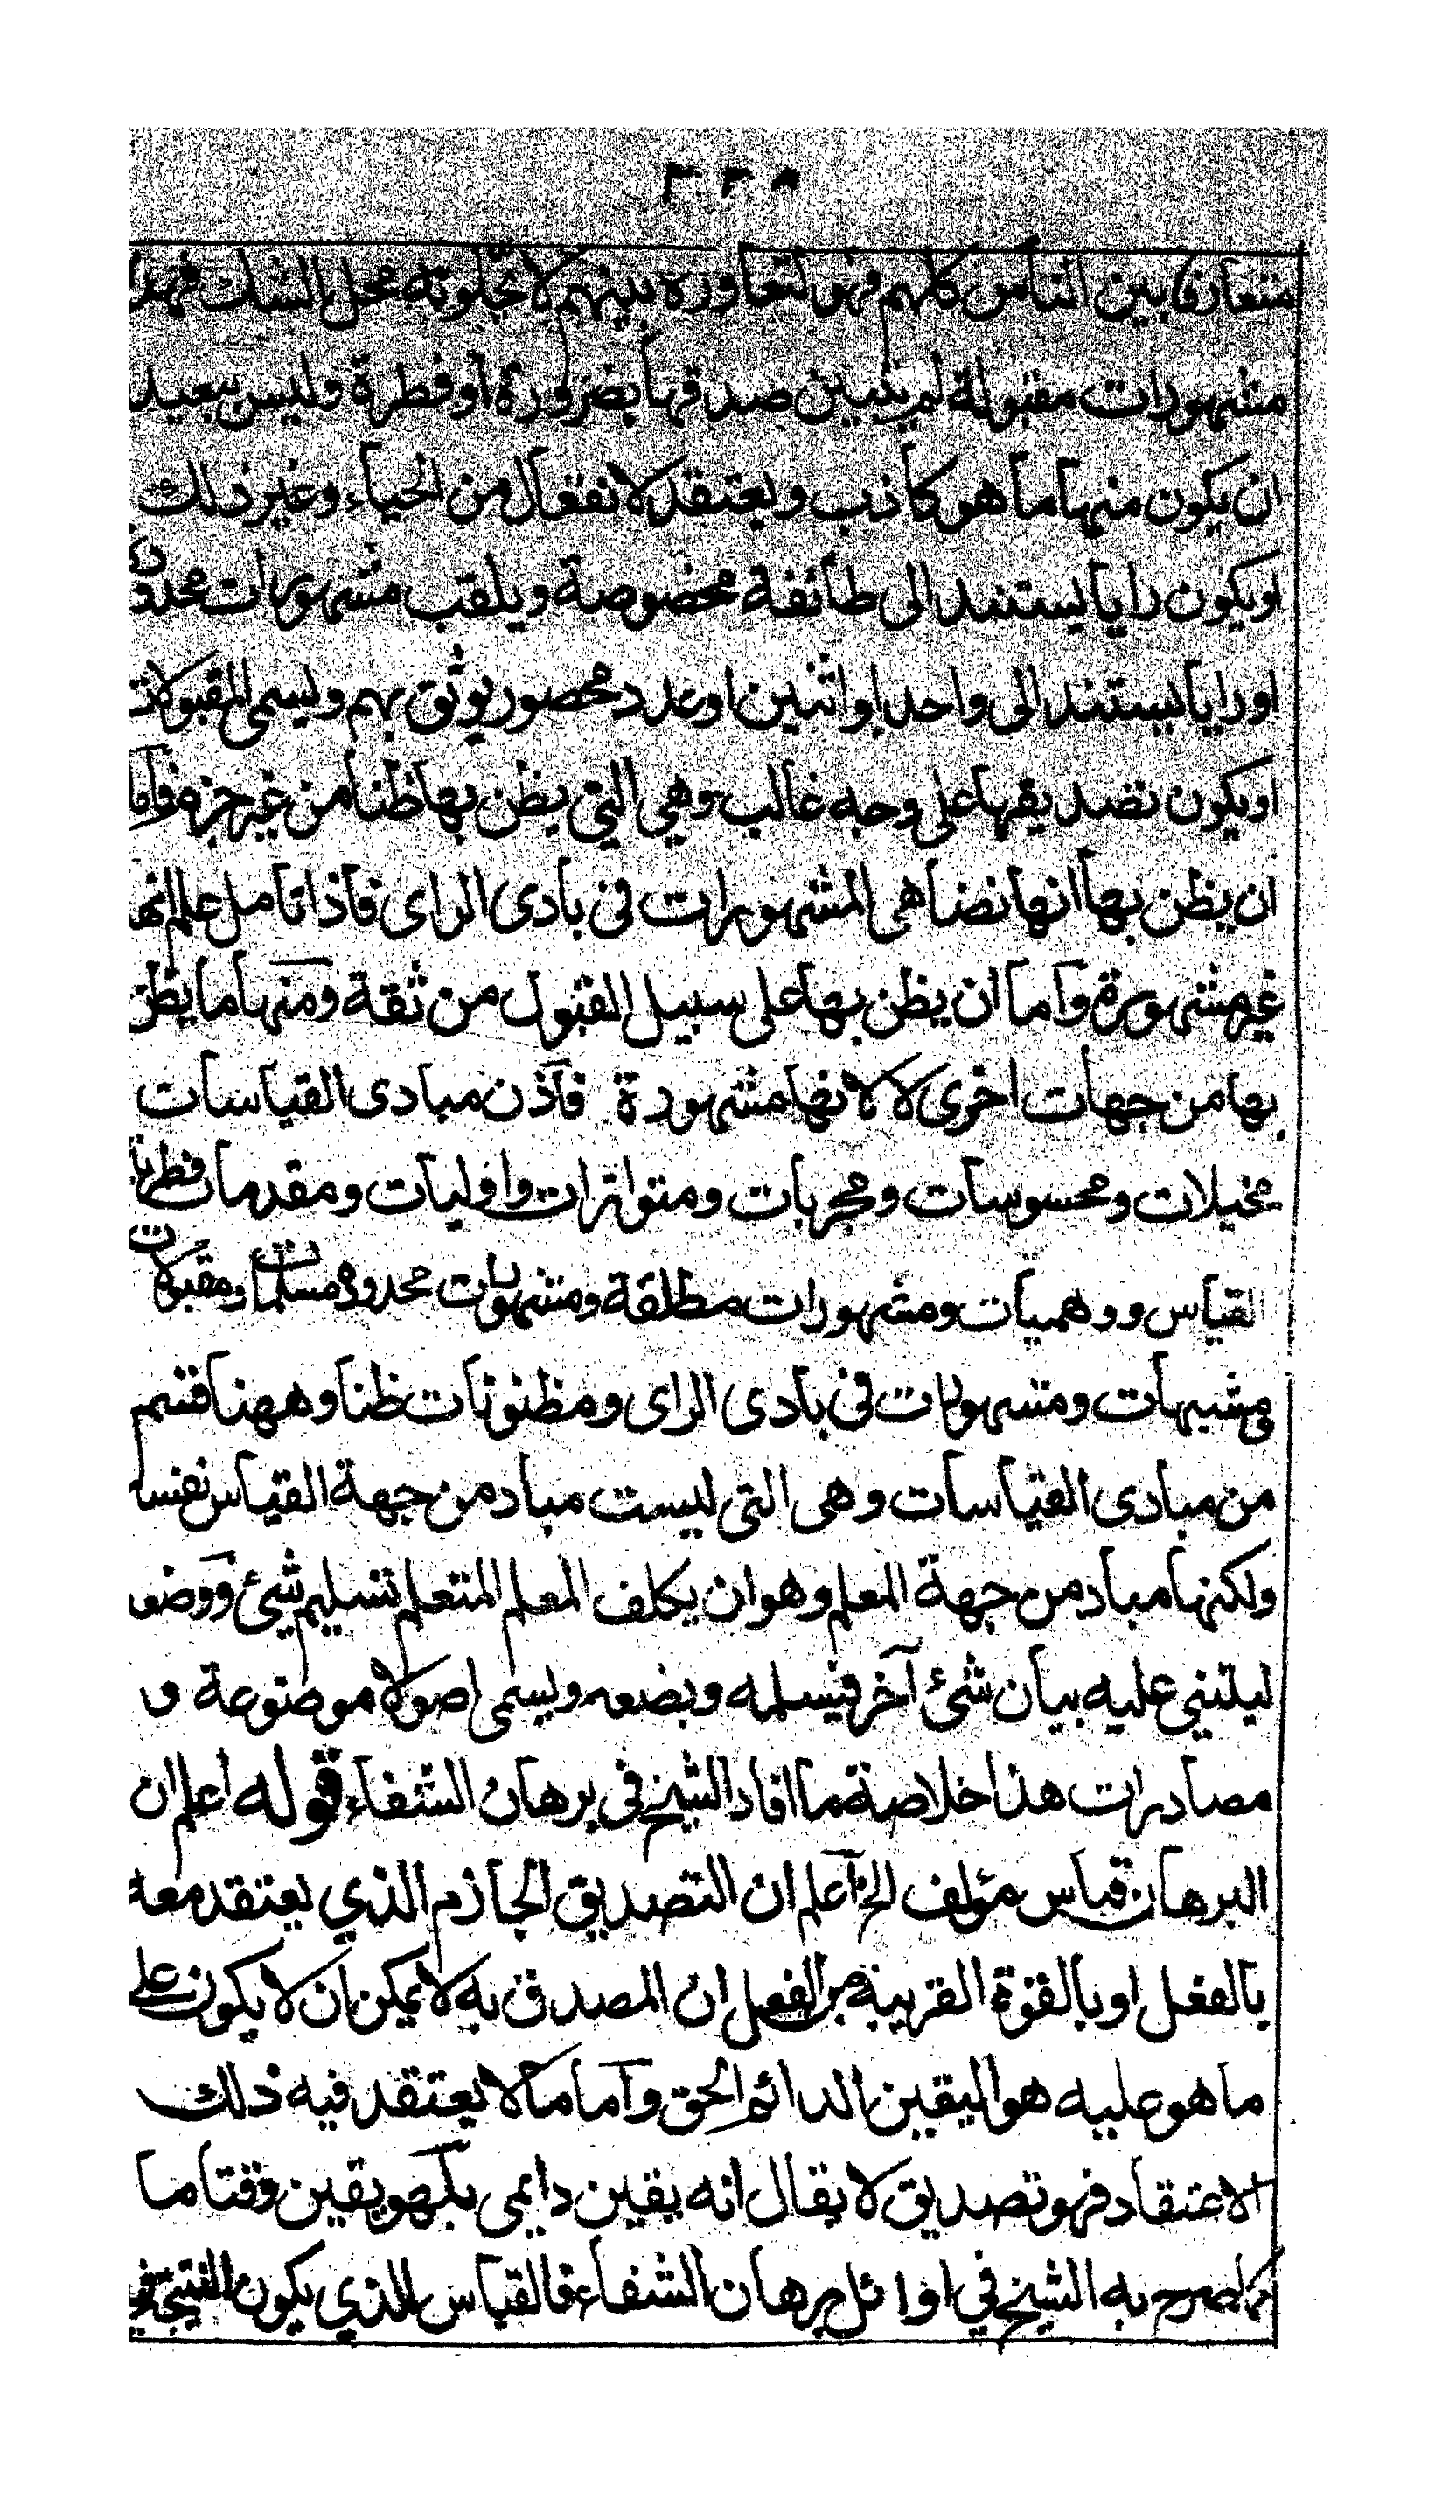 ٢٢٥
متعارفا بين الناس كلهم فهى لتعاوره بينهم لا تحلونه محل الشك فهذه
مشهورات مقبولة لم يتبين صدقها بضرورة او فطرة وليس ببعيد
ان يكون منها ما هو كاذب ويعتقد لانفعال من الحياء وغير ذلك
اويكون رايا يستند الى طائفة مخصوصة ويلقب مشهورات محدودة
اورايا يستند الى واحد او اثنين اوعدد محصور يوثق بهم ويسمى المقبولات
اويكون تصديقها على وجه غالب وهي التي يظن بها ظنا من غير جزم فاما
ان يظن بها انها نضاهى المشهورات فى بادى الراى فاذا تامل علم انها
غير مشهورة واما ان يظن بها على سبيل القبول من ثقة ومنها ما يظن
بها من جهات اخرى لا لانها مشهورة فاذن مبادى القياسات
مخيلات ومحسوسات ومجربات ومتواترات واوليات ومقدمات فطريات
القياس ووهميات ومشهورات مطلقة ومشهورات محدودة مسلمات ومقبولات
مشبهات ومشهورات فى بادى الراى ومظنونات ظنا وههنا قسم
من مبادى القياسات وهى التى ليست مباد من جهة القياس نفسه
ولكنها مباد من جهة المعلم وهو ان يكلف المعلم المتعلم تسليم شئ ووضعه
ليبتنى عليه بيان شئ آخر فيسلمه ويضعه ويسمى اصولا موضوعة و
مصادرات هذا خلاصة ما افاد الشيخ فى برهان الشفاء قوله اعلم ان
البرهان قياس مؤلف الخ اعلم ان التصديق الجازم الذي يعتقد معه
بالفعل او بالقوة القريبة من الفعل ان المصدق به لا يمكن ان لا يكون على
ما هو عليه هو اليقين الدائم الحق واما ما لا يعتقد فيه ذلك
الاعتقاد فهو تصديق لا يقال انه يقين دايمى بل هو يقين وقتا ما
كما صرح به الشيخ في اوائل برهان الشفاء فالقياس الذي يكون النتيجة